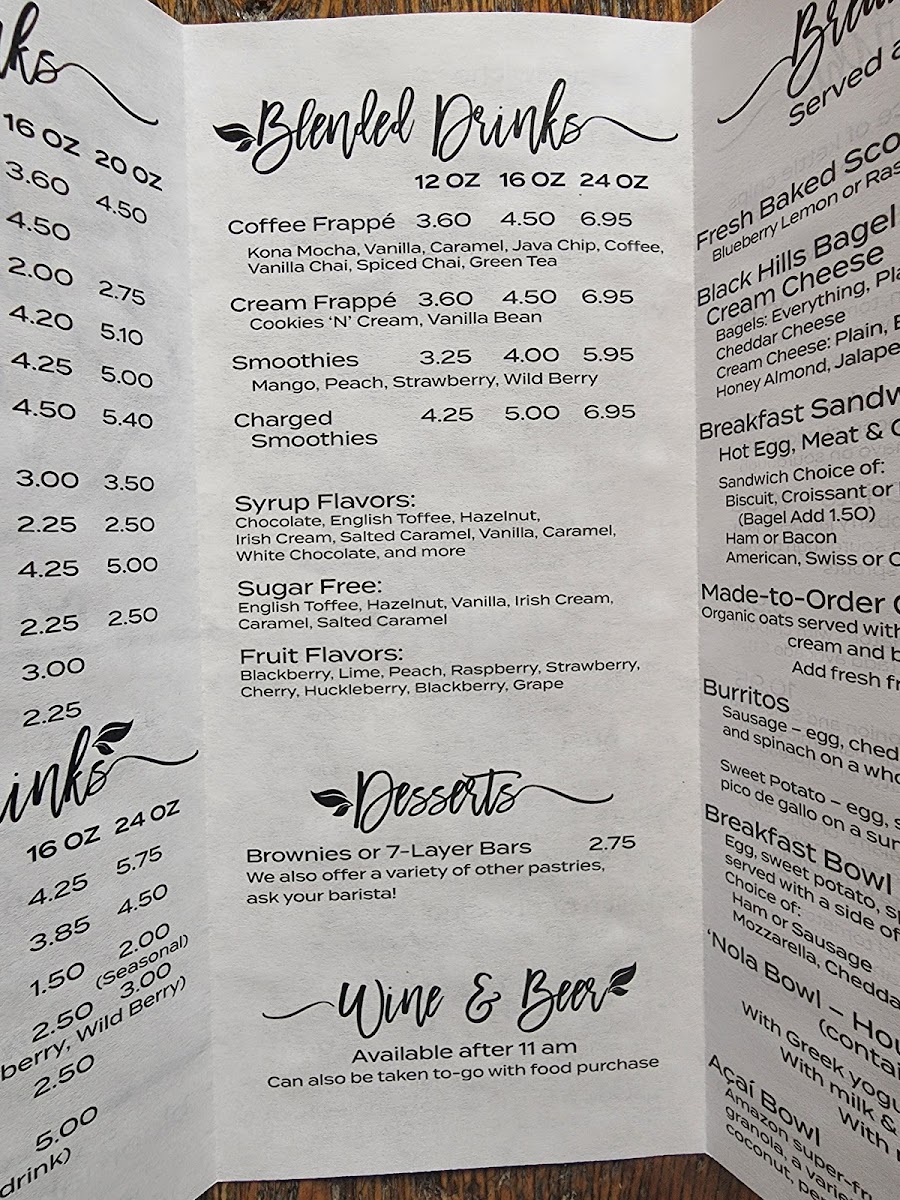 16 OZ 20 OZ
3.60 4.50
4.50
2.00 2.75
4.20 5.10
4.25 5.00
4.50 5.40
3.00 3.50
2.25 2.50
4.25 5.00
2.25 2.50
3.00
2.25
16 OZ 24 OZ
4.25 5.75
3.85 4.50
1.50 2.00
(Seasonal)
2.50 3.00
berry, Wild Berry)
2.50
5.00
drink)
Blended Drinks
12 OZ 16 OZ 24 OZ
Coffee Frappé 3.60 4.50 6.95
Kona Mocha, Vanilla, Caramel, Java Chip, Coffee,
Vanilla Chai, Spiced Chai, Green Tea
Cream Frappé 3.60 4.50 6.95
Cookies ‘N’ Cream, Vanilla Bean
Smoothies 3.25 4.00 5.95
Mango, Peach, Strawberry, Wild Berry
Charged 4.25 5.00 6.95
Smoothies
Syrup Flavors:
Chocolate, English Toffee, Hazelnut,
Irish Cream, Salted Caramel, Vanilla, Caramel,
White Chocolate, and more
Sugar Free:
English Toffee, Hazelnut, Vanilla, Irish Cream,
Caramel, Salted Caramel
Fruit Flavors:
Blackberry, Lime, Peach, Raspberry, Strawberry,
Cherry, Huckleberry, Blackberry, Grape
Desserts
Brownies or 7-Layer Bars 2.75
We also offer a variety of other pastries,
ask your barista!
Wine & Beer
Available after 11 am
Can also be taken to-go with food purchase
Served a
Fresh Baked Sco
Blueberry Lemon or Ras
Black Hills Bagel
Cream Cheese
Bagels: Everything, Pla
Cheddar Cheese
Cream Cheese: Plain, B
Honey Almond, Jalape
Breakfast Sandw
Hot Egg, Meat & C
Sandwich Choice of:
Biscuit, Croissant or
(Bagel Add 1.50)
Ham or Bacon
American, Swiss or C
Made-to-Order
Organic oats served with
cream and b
Add fresh fr
Burritos
Sausage – egg, ched
and spinach on a who
Sweet Potato – egg, s
pico de gallo on a sun
Breakfast Bowl
Egg, sweet potato, sp
served with a side of
Choice of:
Ham or Sausage
Mozzarella, Chedda
‘Nola Bowl – Hou
(contai
With Greek yogu
With milk &
With
Açaí Bowl
Amazon super-fr
granola, a varie
coconut, pe